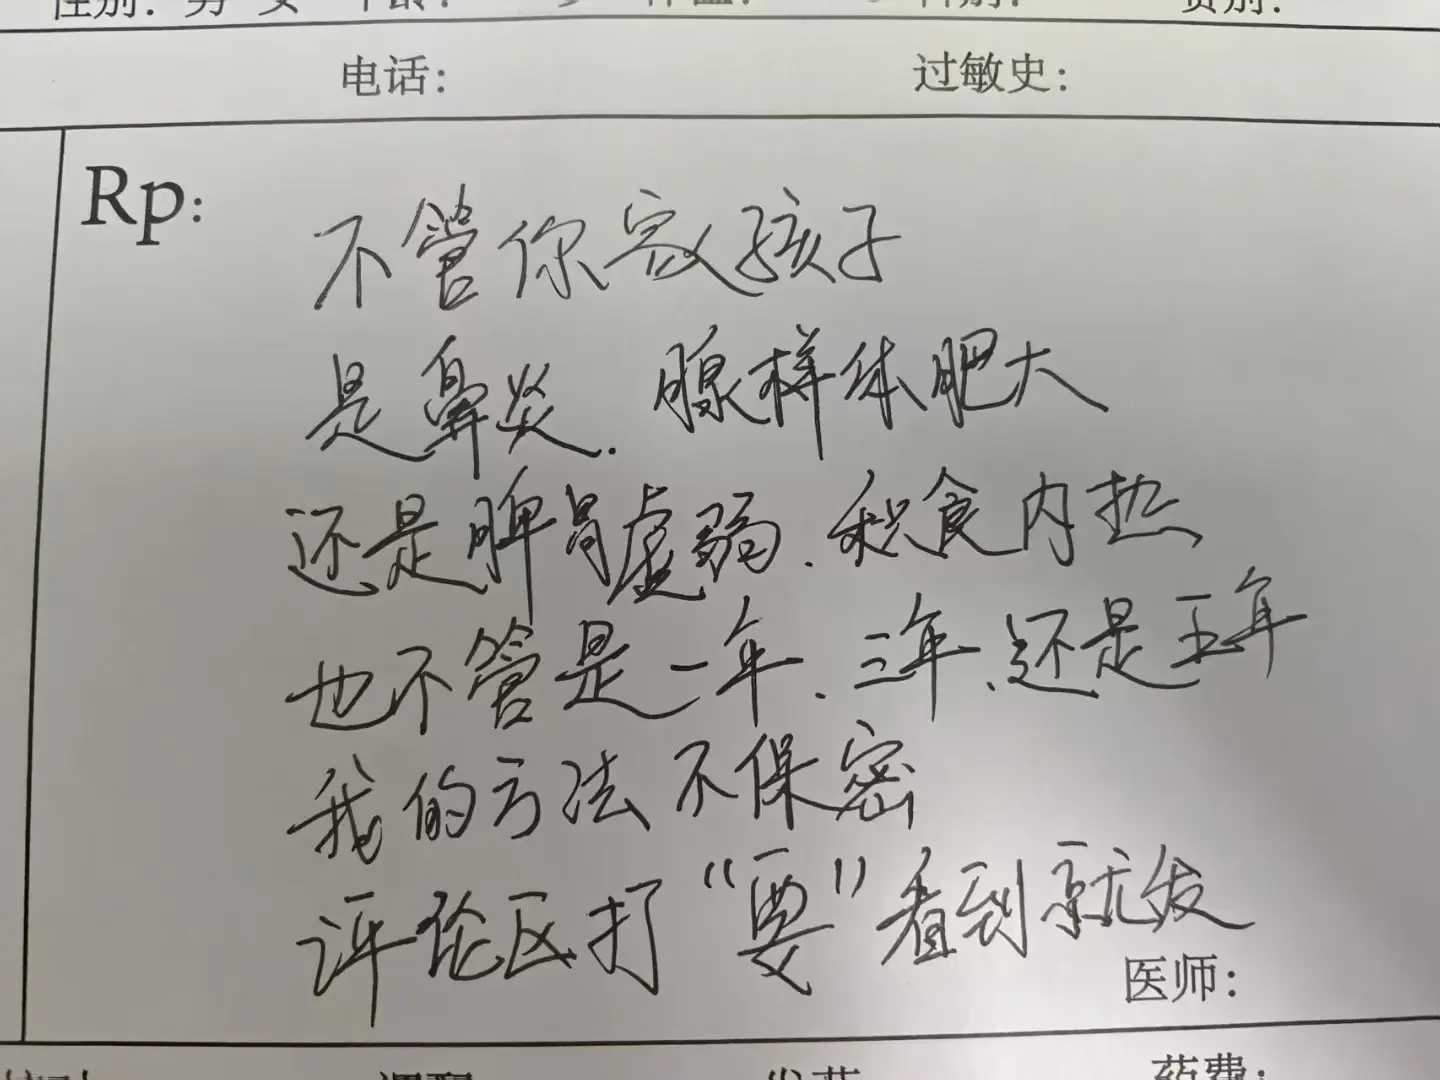 电话: 过敏史:
Rp:
不管你家孩子
是鼻炎.腺样体肥大
还是脾胃虚弱.积食内热
也不管是一年、三年、还是五年
我的方法不保密
评论区打“要”看到就发
医师:
药费: